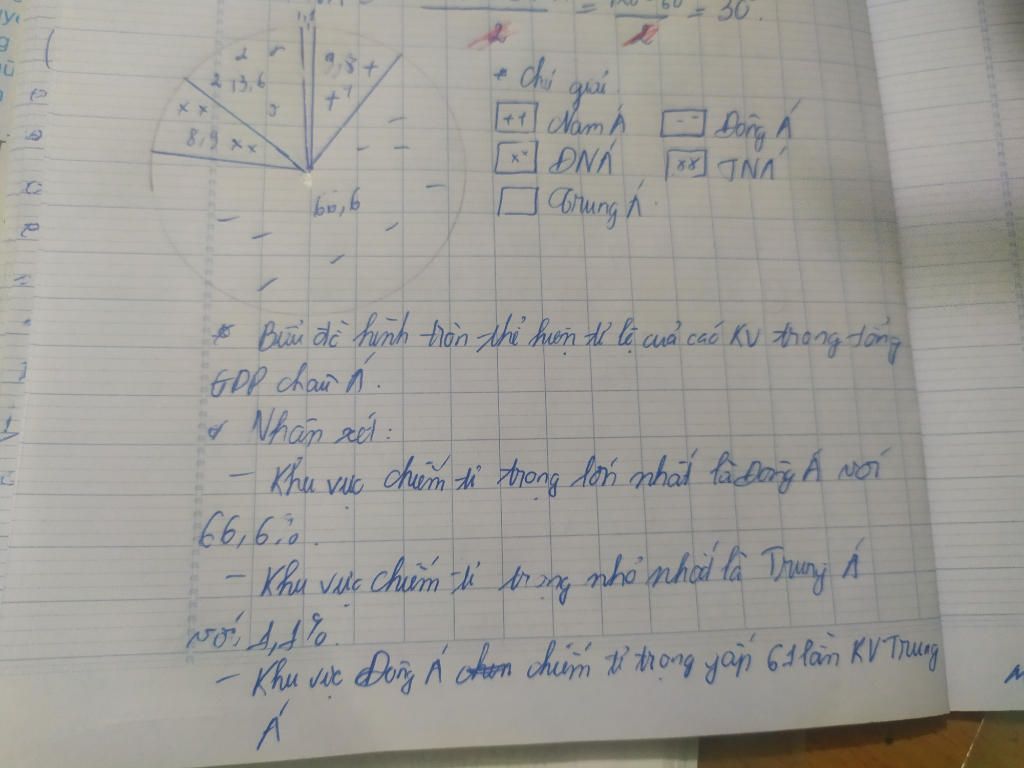 = 30°.
2 2
1,1
9,8 + +
2 13,6
x x
8,9 x x
66,6
* Chú giải
++ Nam Á -- Đông Á
xx ĐNÁ xx TNÁ
Trung Á
* Biểu đồ hình tròn thể hiện tỉ lệ của các KV trong tổng
GDP châu Á.
* Nhận xét:
- Khu vực chiếm tỉ trọng lớn nhất là Đông Á với
66,6%.
- Khu vực chiếm tỉ trọng nhỏ nhất là Trung Á
với 1,1%.
- Khu vực Đông Á chiếm tỉ trọng gấp 61 lần KV Trung
Á